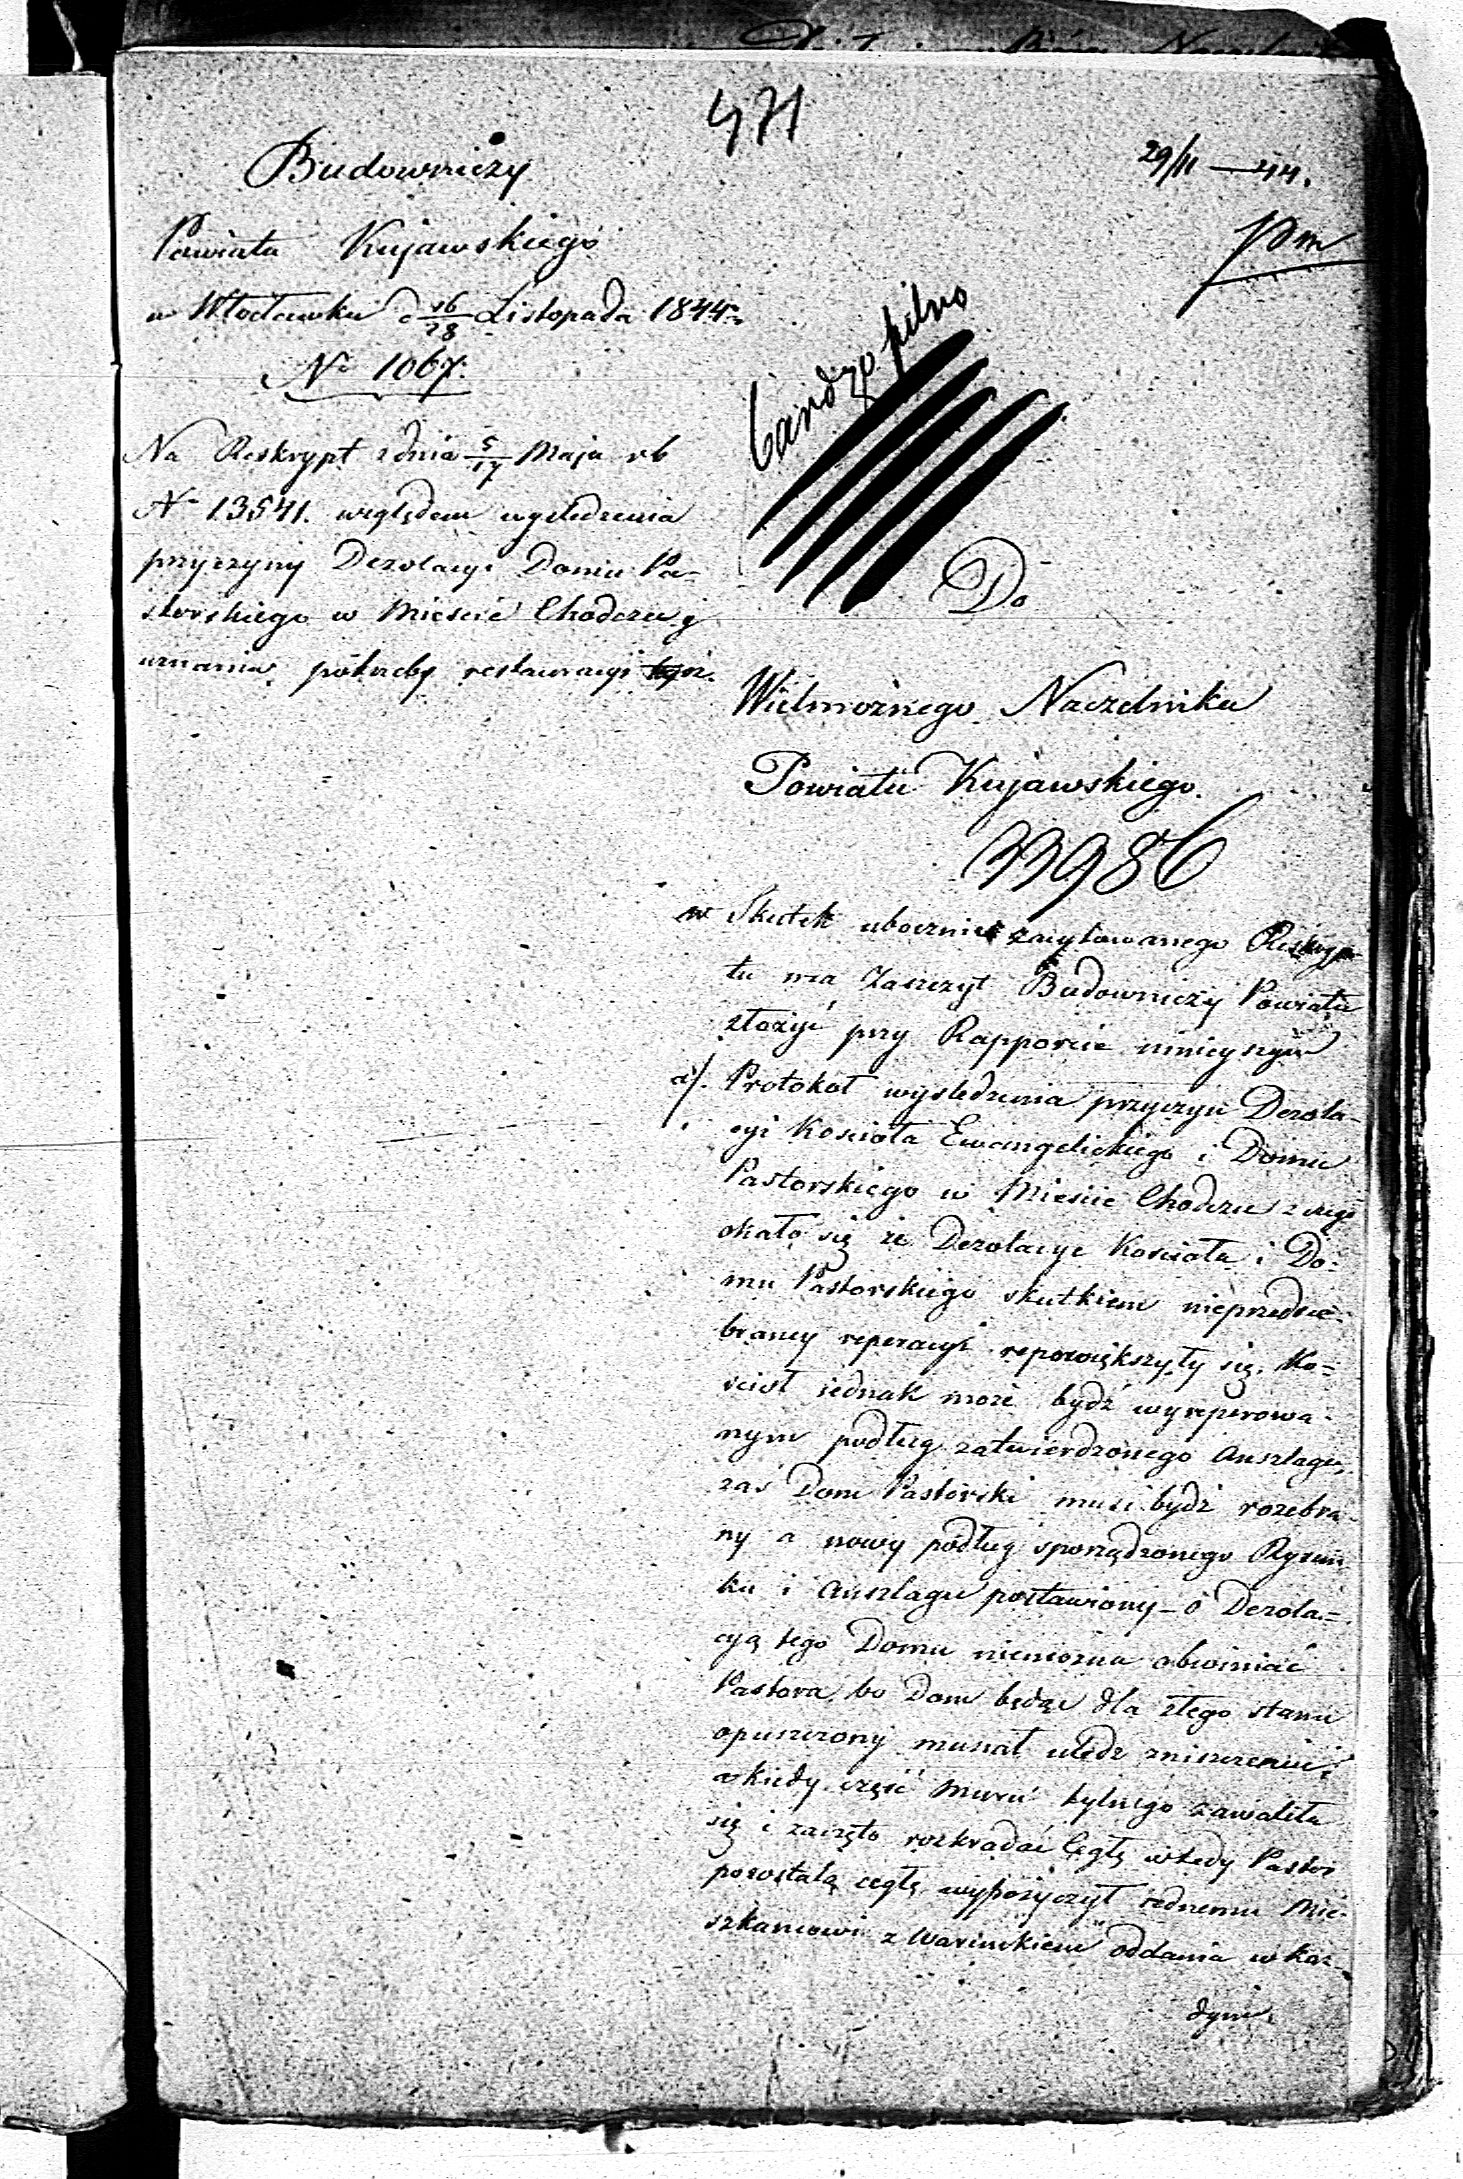 471
29/11 — 44.
Budowniczy
Powiatu Kujawskiego
w Włocławku d 16/28 Listopada 1844.
N° 1067.
bardzo pilno
Na Reskrypt z dnia 5/17 Maja rb
N 13541. względem wyśledzenia
przyczyny Dezolacyi Domu Pa-
storskiego w Mieście Chodczu i
uznania potrzeby restauracyi
Do
Wielmożnego Naczelnika
Powiatu Kujawskiego.
33986
w Skutek ubocznie zacytowanego Reskryp-
tu ma Zaszczyt Budowniczy Powiatu
złożyć przy Rapporcie ninieyszym
a/. Protokół wyśledzenia przyczyn Dezola-
cyi Kościoła Ewangelickiego i Domu
Pastorskiego w Mieście Chodczu z czego
okało się że Dezolacye Kościoła i Do-
mu Pastorskiego skutkiem nieprzedsię-
braney reperacyi powiększyły się. Ko-
ściół iednak może bydź wyreperowa-
nym podług zatwierdzonego anszlagu,
zaś Dom Pastorski musi bydź rozebra-
ny a nowy podług sporządzonego Rysun-
ku i anszlagu postawiony – o Dezola-
cyą tego Domu niemożna obwiniać
Pastora, bo Dom będąc dla złego stanu
opuszczony musiał uledz zniszczeniu,
a kiedy część muru tylnego zawaliła
się i zaczęto rozkradać Cegłę wtedy Pastor
pozostałą cegłę wypożyczył iednemu Mie-
szkańcowi z warunkiem oddania w każ-
dym